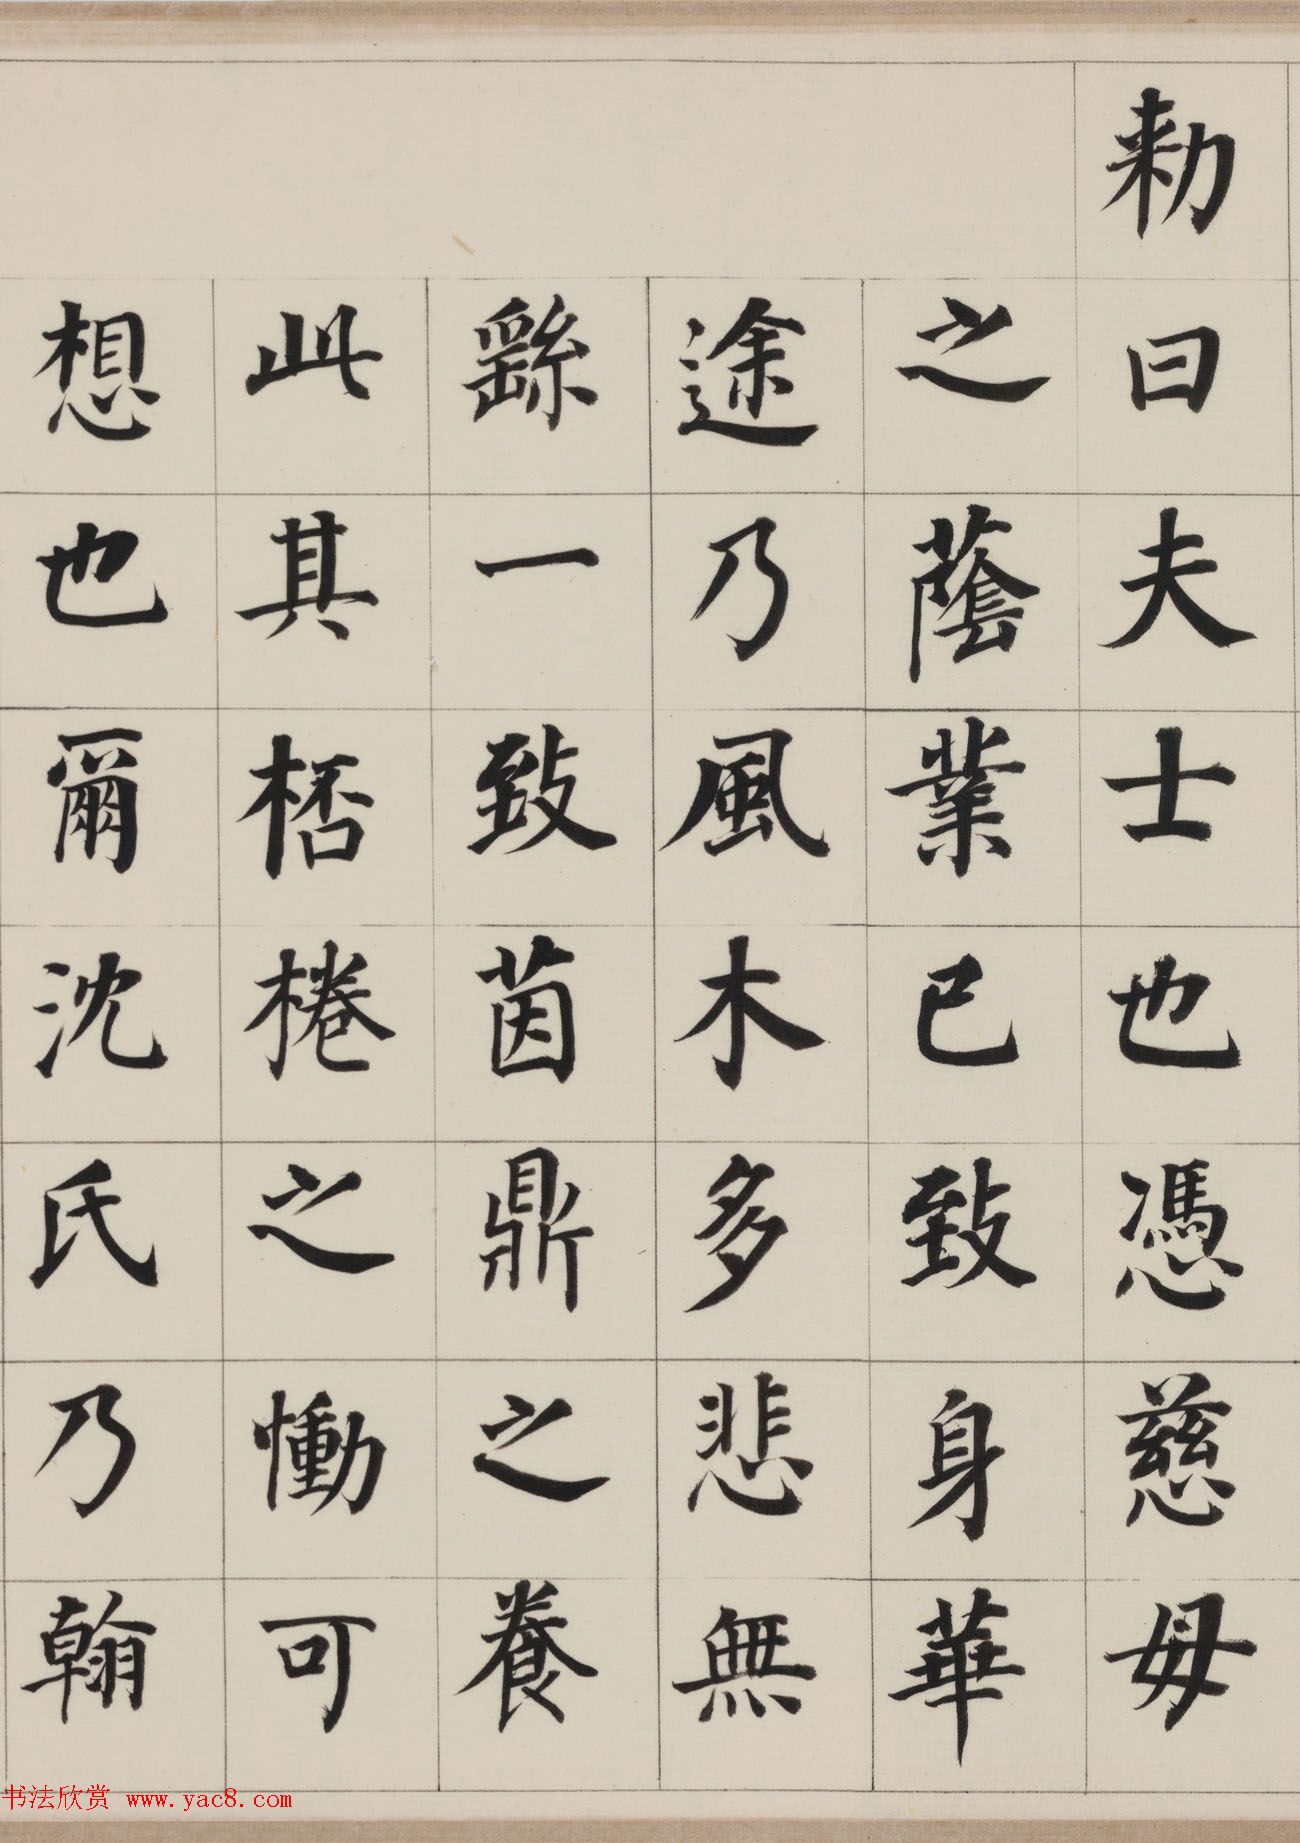 勑曰夫士也憑慈母
之蔭業已致身華
途乃風木多悲無
繇一致茵鼎之養
此其桮棬之慟可
想也爾沈氏乃翰
书法欣赏 www.yac8.com